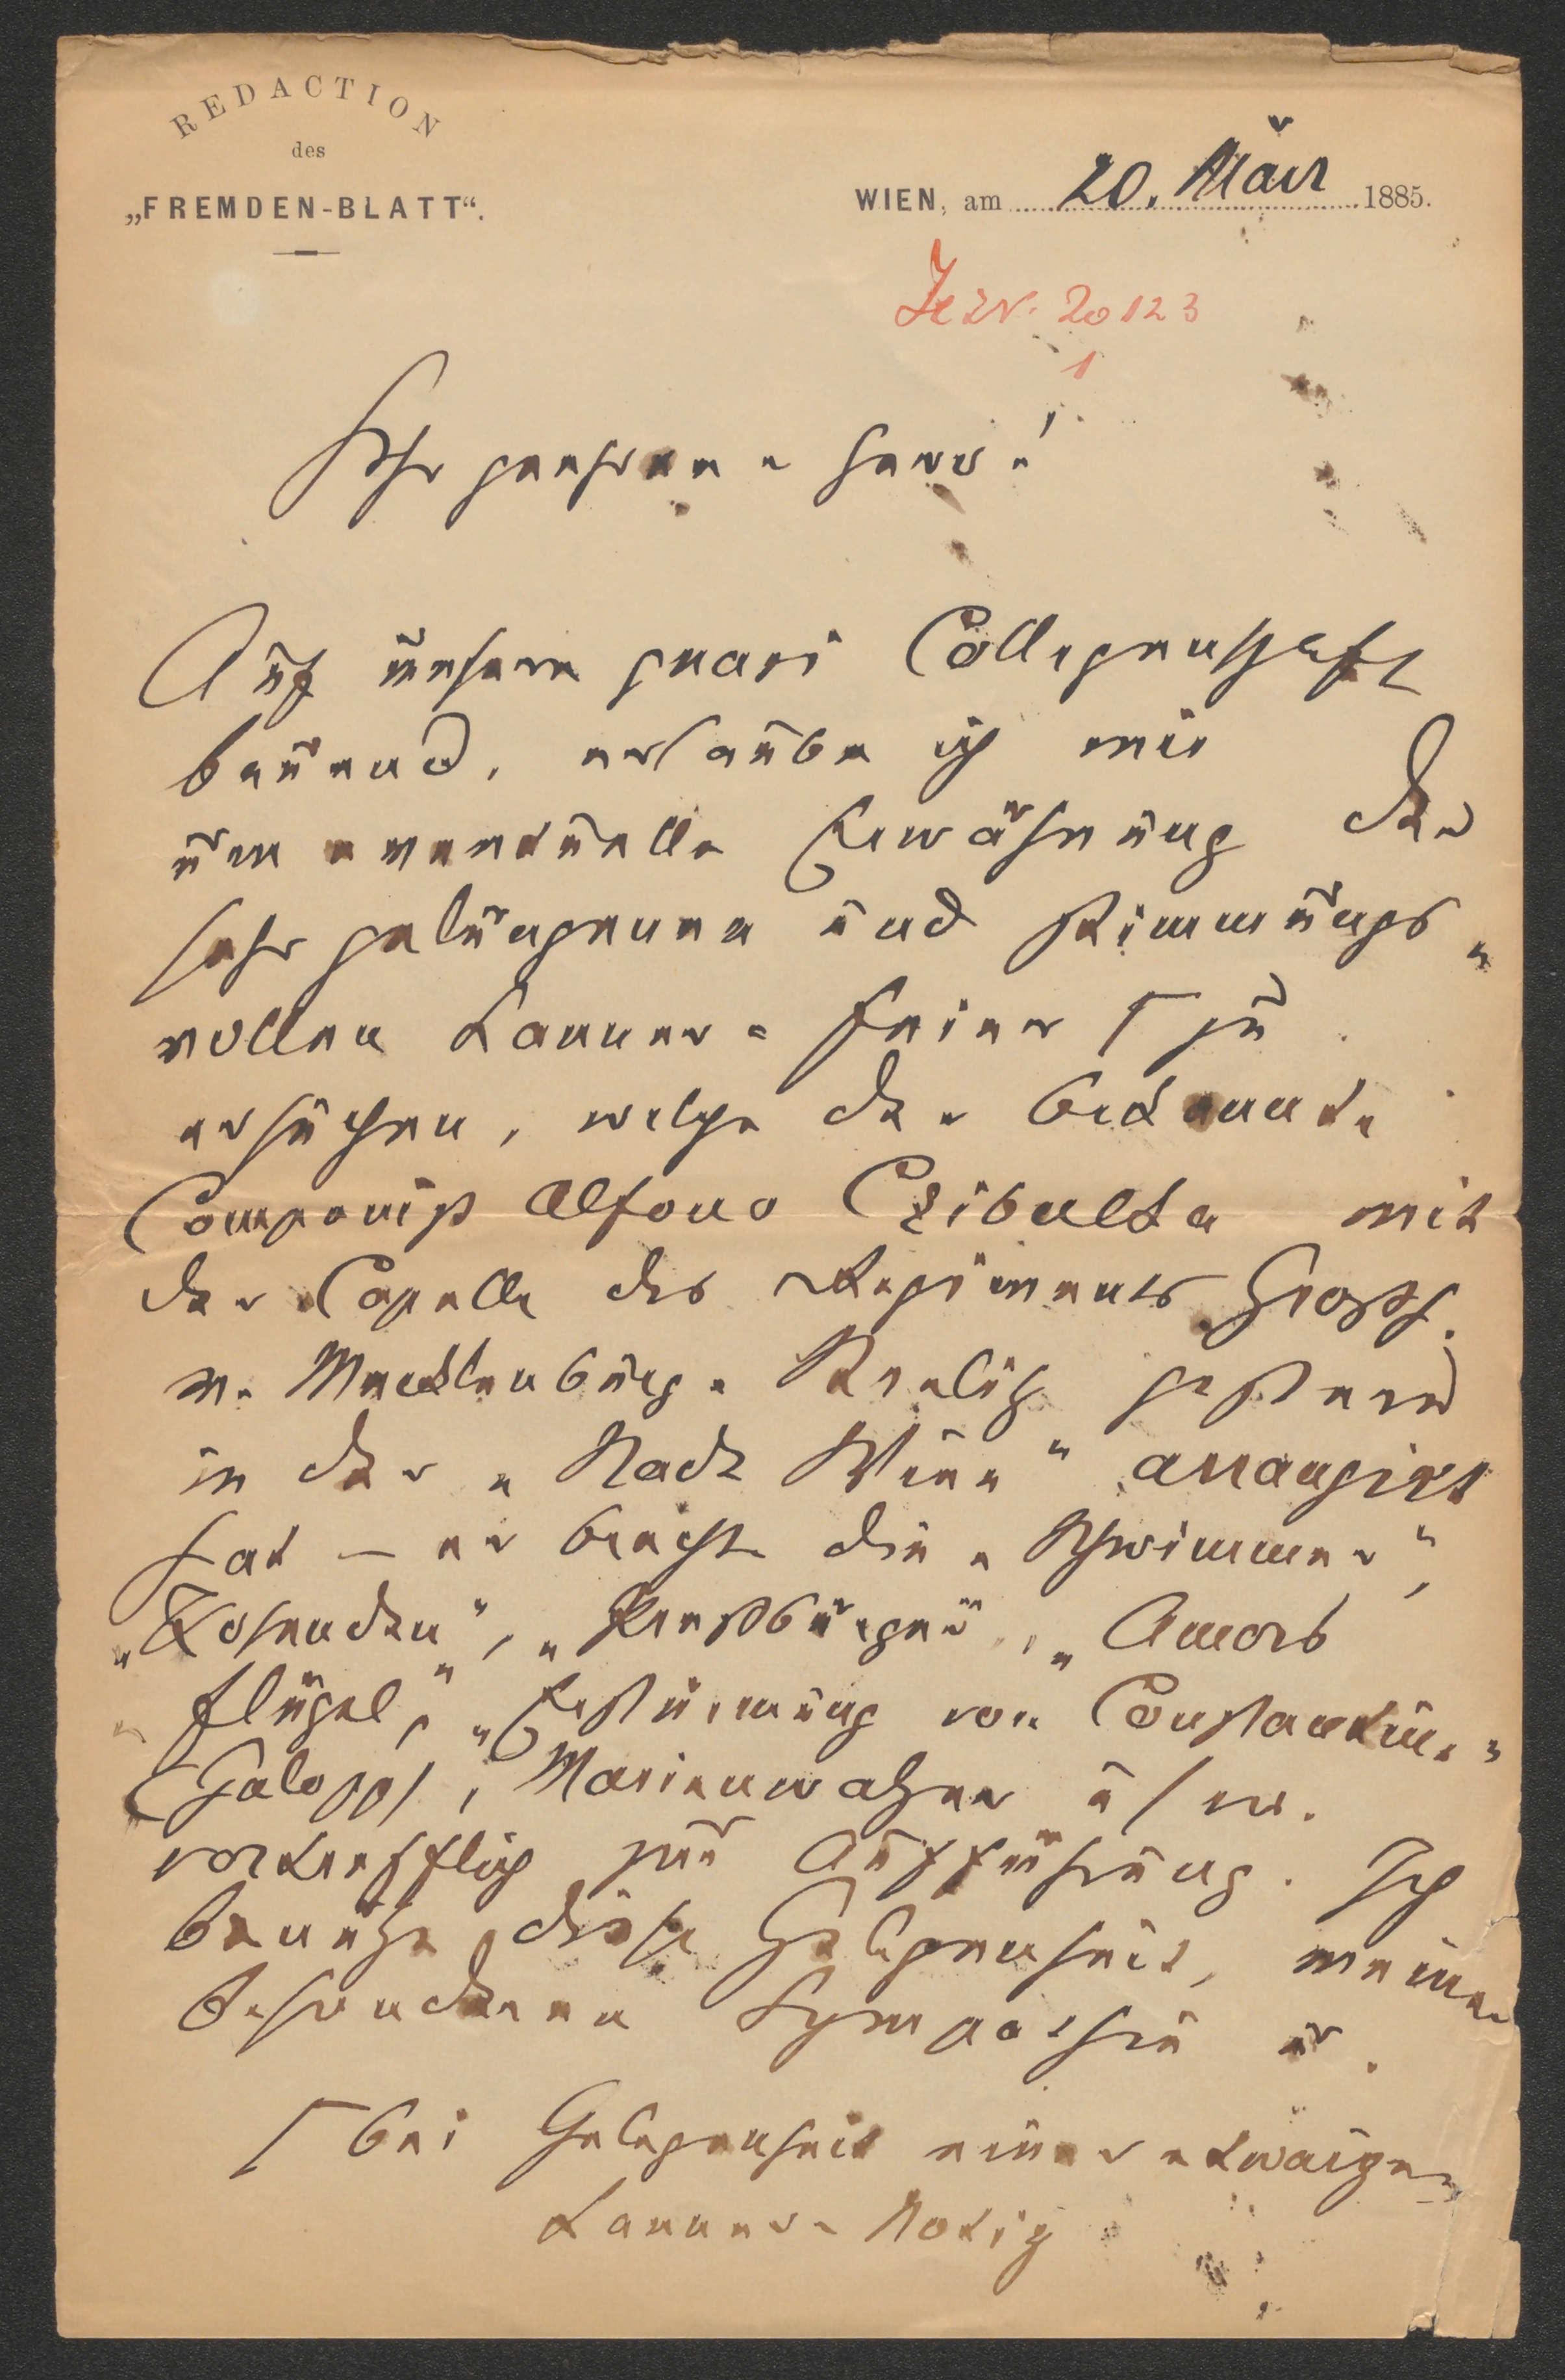 REDACTION
des
„FREMDEN-BLATT“.
WIEN, am 20. März 1885.
20123
1
Sehr geehrter Herr!
Auf unsere quasi Collegenschaft
bauend, erlaube ich mir
um eventuelle Erwähnung der
sehr gelungenen und stimmungs-
vollen Lanner-Feier ⌈ zu
ersuchen, welche der bekannte
Componist Alfons Czibulka mit
der Capelle des Regiments Großh.
v. Mecklenburg-Strelitz gestern
in der „Stadt Wien“ arrangirt
hat – er brachte die „Schwimmer“,
„Kosenden“, „Preßburger“, „Amors
Flügel“, „Erstürmung von Constantine“
(Galopp), Marienwalzer u s w.
vortrefflich zur Aufführung. Ich
benutze diese Gelegenheit, meiner
besonderen Sympathie u.
⌈ bei Gelegenheit einer etwaigen
Lanner-Notiz